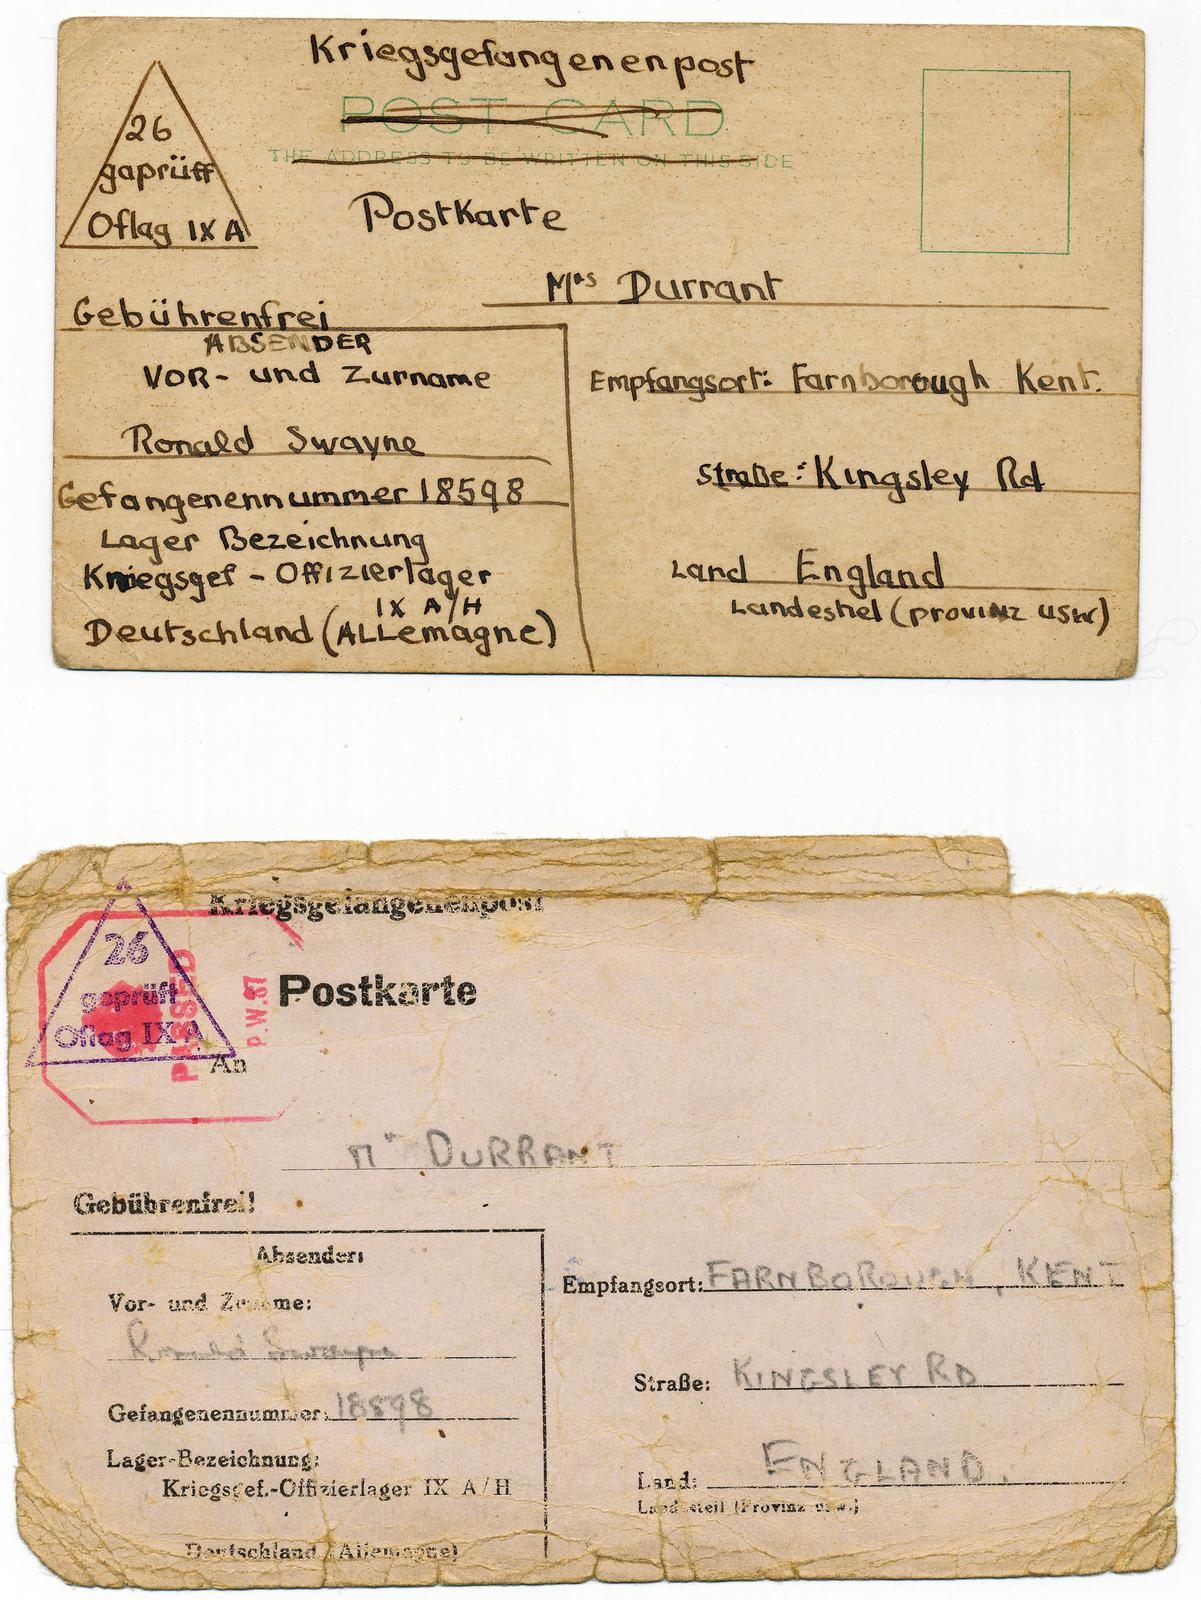 Kriegsgefangenenpost
POST CARD
THE ADDRESS TO BE WRITTEN ON THIS SIDE
26
gaprüft
Oflag IX A
Postkarte
Mrs Durrant
Gebührenfrei
ABSENDER
Vor- und Zurname
Ronald Swayne
Gefangenennummer 18598
Lager Bezeichnung
Kriegsgef - Offizierlager
IX A/H
Deutschland (Allemagne)
Empfangsort: Farnborough Kent.
Straße: Kingsley Rd
Land England
Landesteil (provinz usw)
Kriegsgefangenenpost
26
geprüft
Oflag IX A
PASSED
P.W. 87
Postkarte
An
Mrs DURRANT
Gebührenfrei!
Absender:
Vor- und Zuname:
Ronald Swayne
Gefangenennummer: 18598
Lager-Bezeichnung:
Kriegsgef.-Offizierlager IX A/H
Deutschland (Allemagne)
Empfangsort: FARNBOROUGH, KENT
Straße: KINGSLEY RD
Land: ENGLAND.
Landesteil (Provinz usw.)